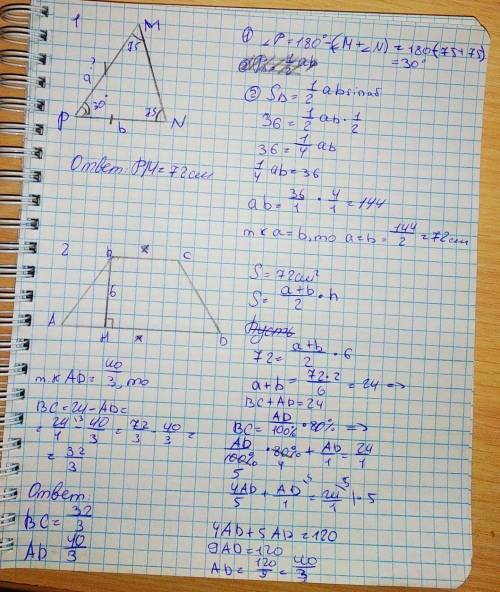 1
M
75
?
a
30°
75
P
b
N
Ответ: PM = 72см
① ∠P = 180° - (∠M + ∠N) = 180 - (75 + 75)
= 30°
② S∆ = 1/2 ab sin ab
36 = 1/2 ab · 1/2
36 = 1/4 ab
1/4 ab = 36
ab = 36/1 · 4/1 = 144
т.к a = b, то a = b = 144/2 = 72см
2
B
x
C
6
A
H
x
D
S = 72см²
S = (a+b)/2 · h
Пусть
72 = (a+b)/2 · 6
a+b = 72·2/6 = 24 =>
BC + AD = 24
BC = AD/100% · 80% =>
AD/100% · 80% + AD/1 = 24/1
5 4
4AD/5 + AD/1 = 24/1 | · 5
4AD + 5AD = 120
9AD = 120
AD = 120/9 = 40/3
т.к AD = 40/3, то
BC = 24 - AD =
= 24/1 - 40/3 = 72/3 - 40/3 =
= 32/3
Ответ:
BC = 32/3
AD 40/3